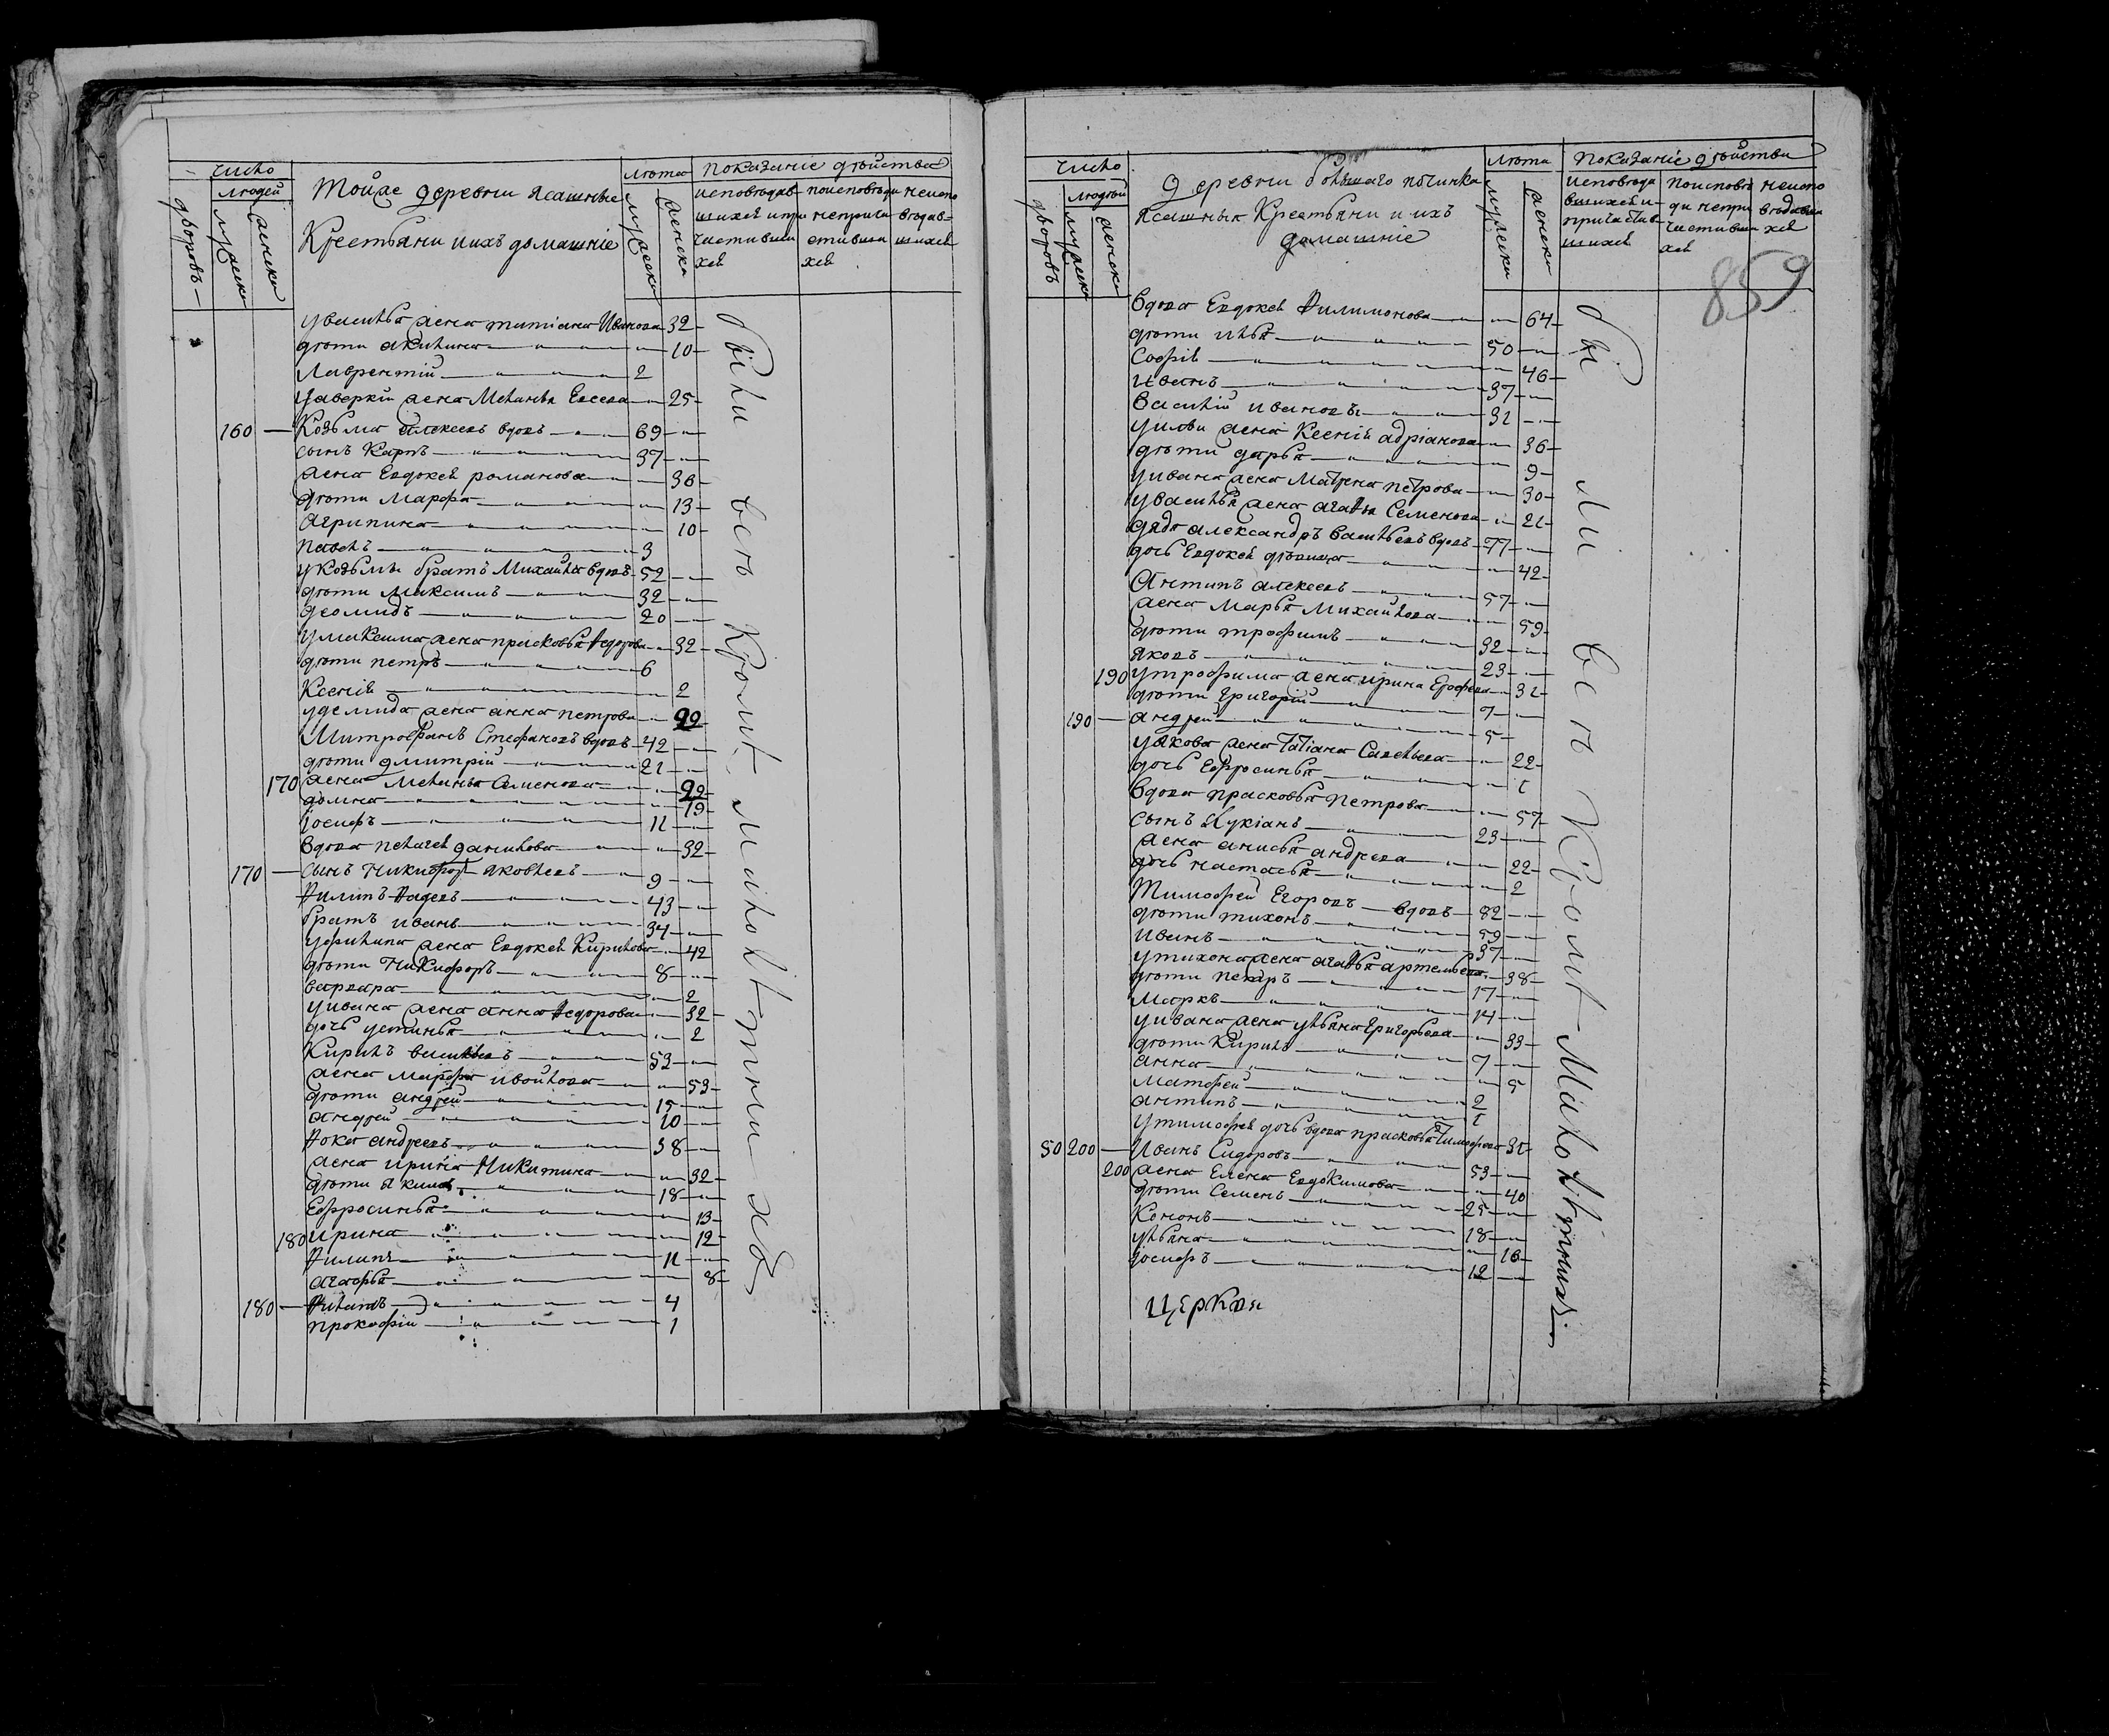 число
людей
дворовъ
мужеска
женска
Тойже деревни ясашные
Крестьяни и ихъ домашніе
лѣта
мужеска
женска
показаніе дѣйства
исповѣдав-
шихся и при
частивши
хся
поисповѣди
неприча
стивши
хся
неиспо
вѣдав-
шихся
у василья жена татиана Иванова 32
дѣти акилина 10
Лаврентій 2
у аверкія жена Меланья Евсева 25
160 Козьма алексеевъ вдовъ 69
сынъ Карпъ 37
жена Евдокея романова 36
дѣти Марфа 13
Агрипина 10
павелъ 3
у козьмы братъ Михайла вдовъ 52
дѣти Максимъ 32
деомидъ 20
у максима жена прасковья Ѳедорова 32
дѣти петръ 6
Ксенія 2
у деомида жена анна петрова 22
Митрофанъ Стефановъ вдовъ 42
дѣти дмитрій 21
170 жена Меланья Семенова 22
домна 19
іосифъ 11
вдова пелагея данилова 32
170 сынъ Никифоръ яковлевъ 9
Филипъ Фадеевъ 43
братъ иванъ 34
у филипа жена Евдокея Кирилова 42
дѣти Никифоръ 8
варвара 2
у ивана жена анна Ѳедорова 32
дочь устинья 2
Кирилъ васильевъ 53
жена марфа ивойлова 53
дѣти андрей 15
андрей 10
Фока андреевъ 38
жена ирина Никитина 32
дѣти якимъ 18
Ефросинья 13
180 ирина 12
Филипъ 11
агафья 8
180 Филатъ 4
прокофій 1
были всѣ Кромѣ малолѣтнихъ
число
людей
дворовъ
мужеска
женска
деревни большаго починка
ясашныя Крестьяни и ихъ
домашніе
лѣта
мужеска
женска
Показаніе дѣйства
исповѣда
вшихся и
причастив-
шихся
поисповѣ
ди непри
частивши
хся
неиспо
вѣдавши
хся
859
вдова Евдокея Филимонова 64
дѣти илья 50
Софія 46
иванъ 37
василій ивановъ 31
у ильи жена Ксенія адріанова 36
дѣти дарья 9
у ивана жена Матрена петрова 30
у василья жена агафья Семенова 21
дядя александръ васильевъ вдовъ 77
дочь Евдокея дѣвица 42
Антипъ алексеевъ 57
жена Марья Михайлова 59
дѣти трофимъ 32
яковъ 23
190 у трофима жена ирина Ерофеева 31
дѣти Григорій 7
190 андрей 5
у якова жена Татіана Савельева 22
дочь Ефросинья 1
вдова прасковья петрова 57
Сынъ Лукіанъ 23
жена анисья андреева 22
дочь настасья 2
Тимофей Егоровъ вдовъ 82
дѣти тихонъ 59
иванъ 37
у тихона жена агафья артемьева 38
дѣти назаръ 17
Маркъ 14
у ивана жена ульяна Григорьева 33
дѣти Кирилъ 7
анна 5
матфей 2
антипъ 1
у тимофея дочь вдова прасковья Тимофеева 31
50 200 Иванъ Сидоровъ 53
200 жена Елена Евдокимова 40
дѣти Семенъ 25
Кононъ 18
ульяна 16
іосифъ 12
Церква
были всѣ Кромѣ Малолѣтнихъ